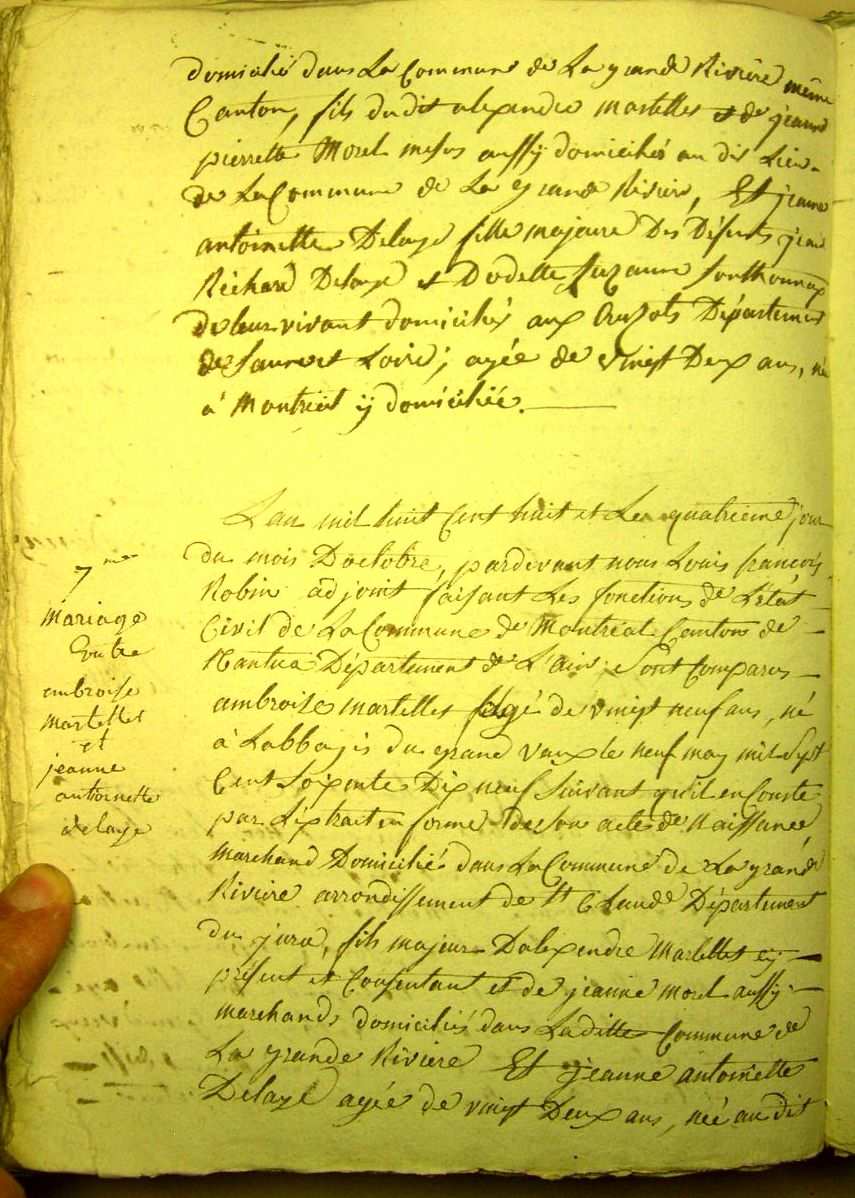 domicilié dans La Commune de La grande Rivière même
Canton, fils du dit alexandre martelles et de jeanne
pierrette Morel meres aussÿ domiciliés au dit Lieu
de La Commune de La grande Riviere, Et jeanne
antoinette Delaye fille majeure Des Défunts jean
Richard Delaye et Dodette Suzanne Southonnax
de leur vivant domiciliés aux Cruzots Département
de Saone et Loire; agée de vingt Deux ans, née
à Montréal ÿ domiciliée.
Lan mil huit Cent huit et Le quatrieme jour
du mois Doctobre, pardevant nous Louis francois
Robin adjoint faisant Les fonctions de L'état
Civil de La Commune de Montréal Canton de
Nantua Département de L'ain; Sont Comparus
ambroise martelles agé de vingt neuf ans, né
à Labbaÿe du grand vaux le neuf may mil Sept
Cent Soixante Dix neuf Suivant qu'il en Conste
par Lextrait en forme de Son acte de Naissance
marchand Domiciliés dans La Commune de La grande
Riviere arrondissement de St Claude Département
du jura, fils majeur Dalexendre Martelles cy
présent et Consentant et de jeanne morel aussÿ
marchands domiciliés dans Laditte Commune de
La grande Riviere Et jeanne antoinette
Delaye agée de vingt Deux ans, née au dit
7me
mariage
Entre
ambroise
martelles
et
jeanne
antoinette
delaye